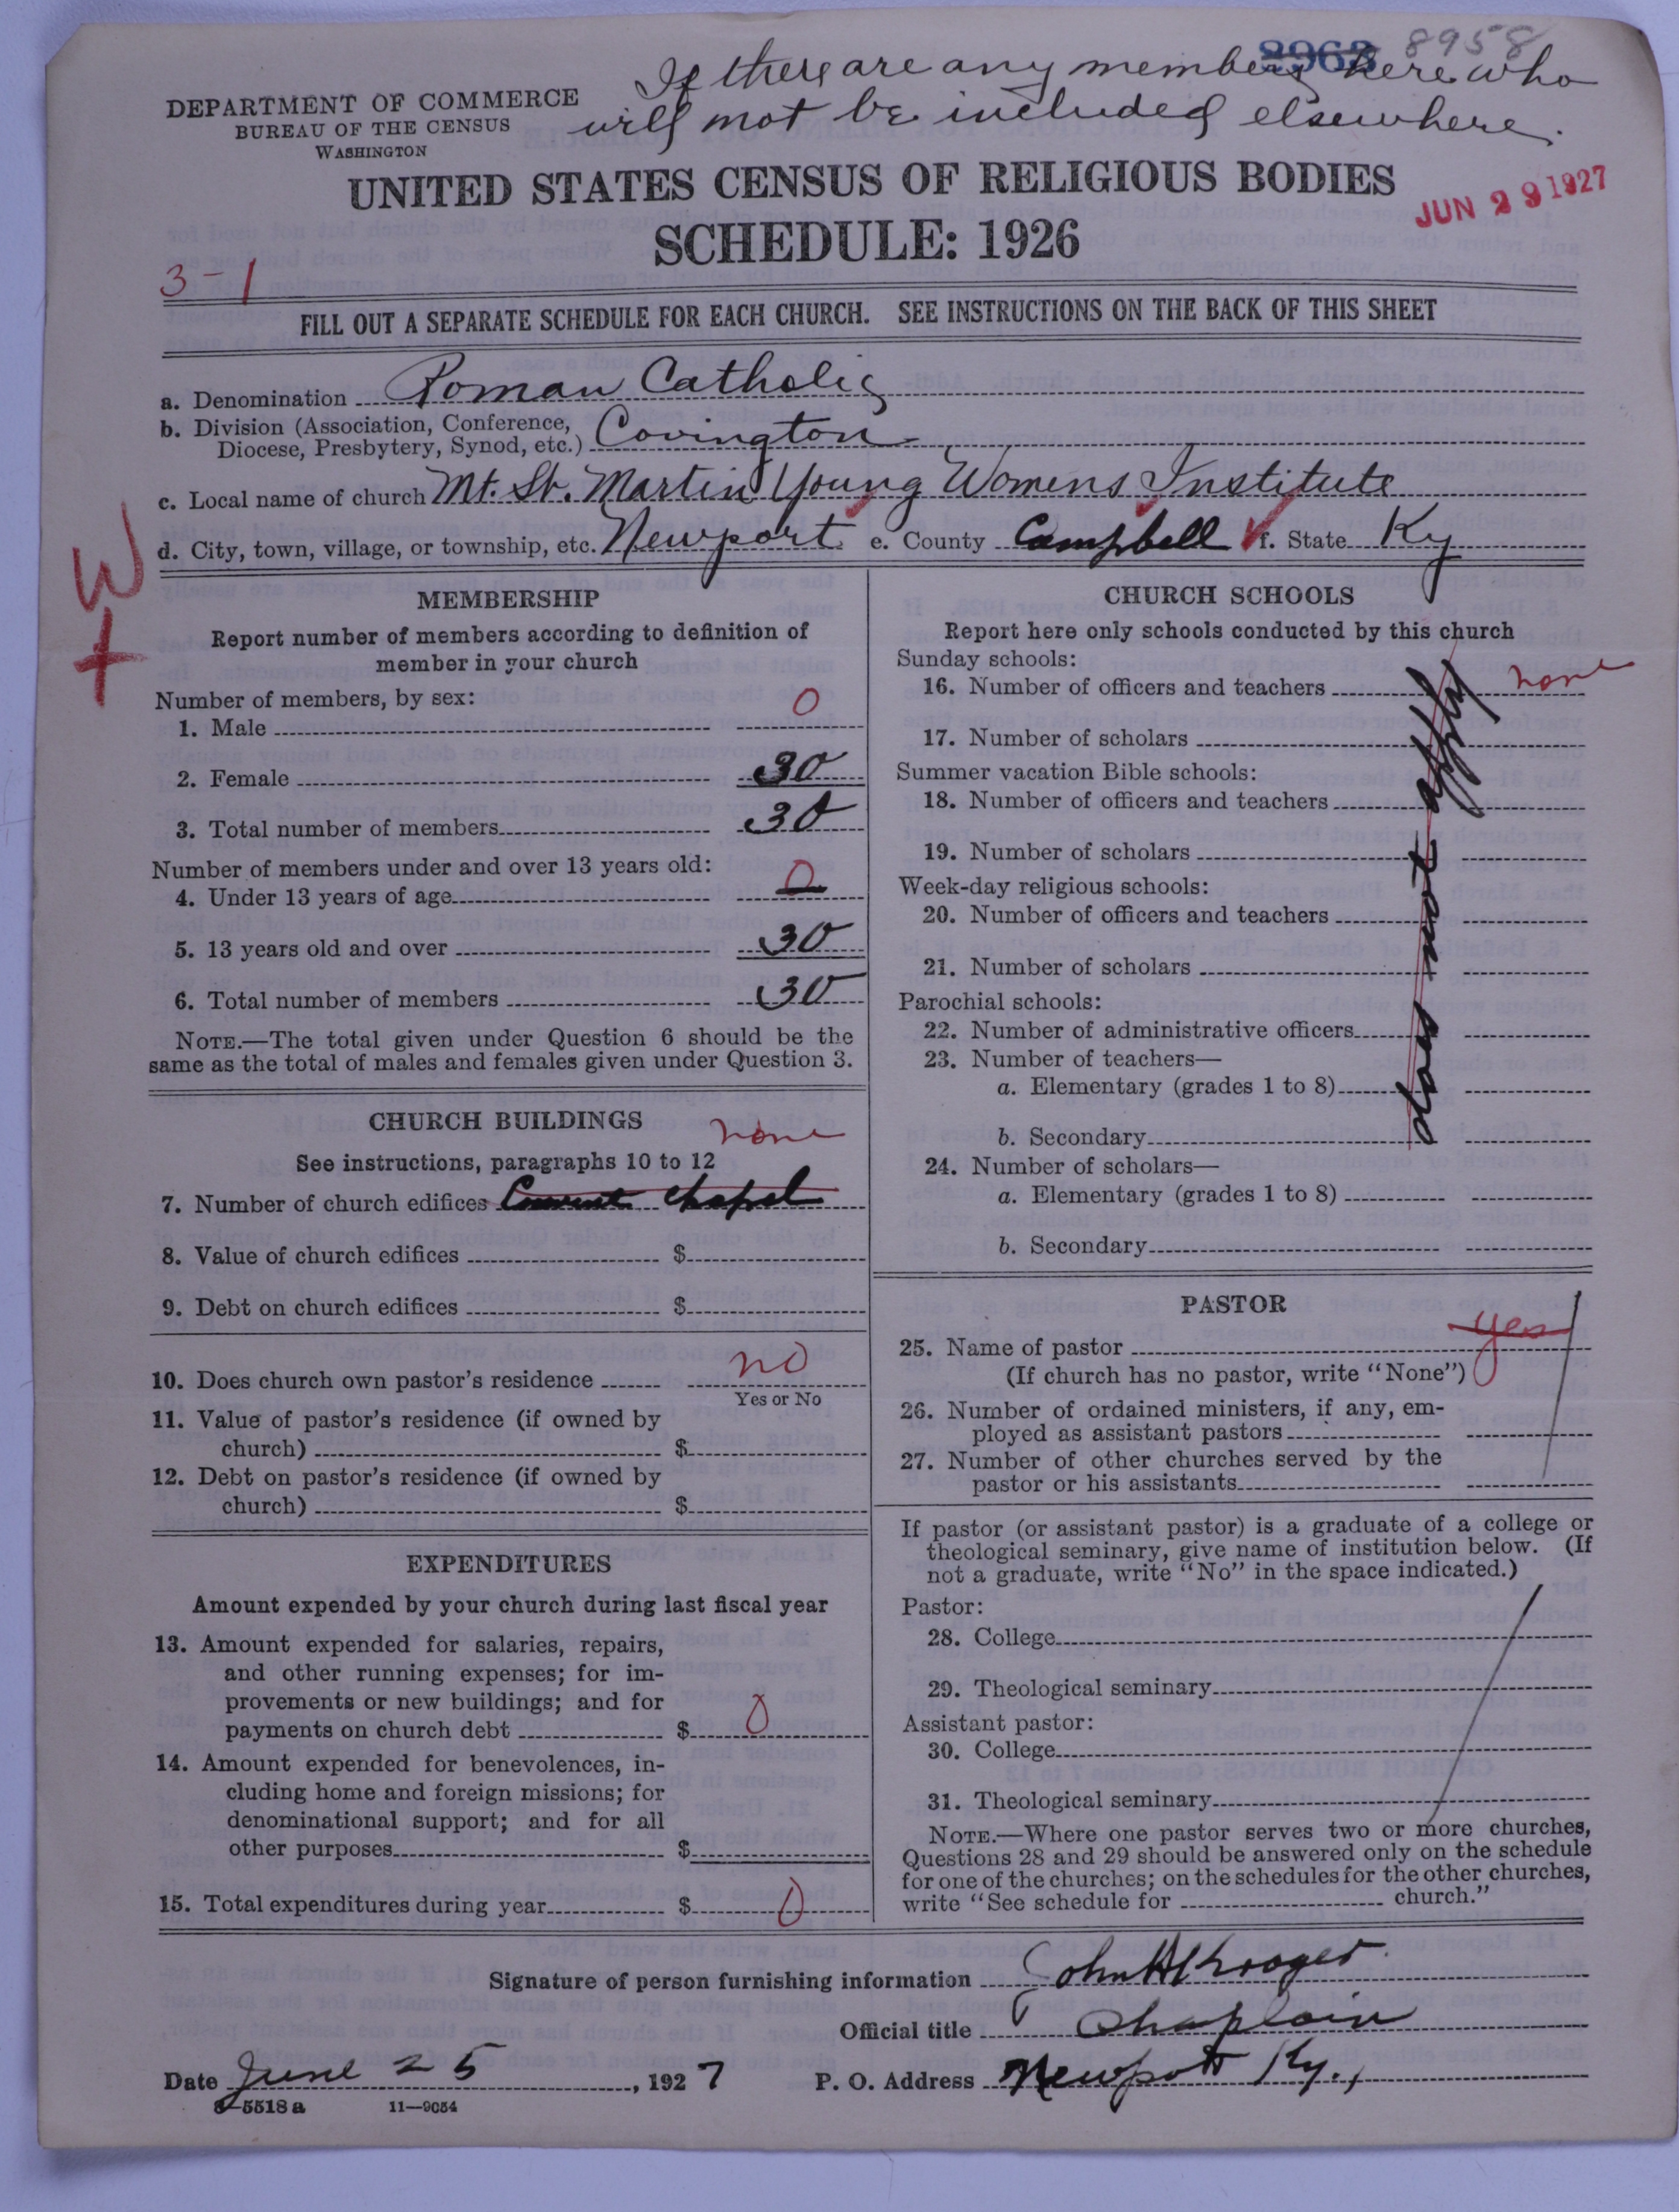 8963 8958
If there are any members here who
will not be included elsewhere.
DEPARTMENT OF COMMERCE
BUREAU OF THE CENSUS
WASHINGTON
UNITED STATES CENSUS OF RELIGIOUS BODIES
SCHEDULE: 1926
JUN 29 1927
3-1
FILL OUT A SEPARATE SCHEDULE FOR EACH CHURCH. SEE INSTRUCTIONS ON THE BACK OF THIS SHEET
a. Denomination Roman Catholic
b. Division (Association, Conference,
Diocese, Presbytery, Synod, etc.) Covington
c. Local name of church Mt. St. Martin Young Womens Institute
d. City, town, village, or township, etc. Newport e. County Campbell f. State Ky
W
MEMBERSHIP
Report number of members according to definition of
member in your church
Number of members, by sex:
1. Male 0
2. Female 30
3. Total number of members 30
Number of members under and over 13 years old:
4. Under 13 years of age 0
5. 13 years old and over 30
6. Total number of members 30
NOTE.—The total given under Question 6 should be the
same as the total of males and females given under Question 3.
CHURCH BUILDINGS
none
See instructions, paragraphs 10 to 12
7. Number of church edifices Convent chapel
8. Value of church edifices $
9. Debt on church edifices $
10. Does church own pastor's residence no
Yes or No
11. Value of pastor's residence (if owned by
church) $
12. Debt on pastor's residence (if owned by
church) $
EXPENDITURES
Amount expended by your church during last fiscal year
13. Amount expended for salaries, repairs,
and other running expenses; for im-
provements or new buildings; and for
payments on church debt $ 0
14. Amount expended for benevolences, in-
cluding home and foreign missions; for
denominational support; and for all
other purposes $
15. Total expenditures during year $ 0
CHURCH SCHOOLS
Report here only schools conducted by this church
Sunday schools:
16. Number of officers and teachers none
17. Number of scholars
Summer vacation Bible schools:
18. Number of officers and teachers
19. Number of scholars
Week-day religious schools:
20. Number of officers and teachers
21. Number of scholars
Parochial schools:
22. Number of administrative officers
23. Number of teachers—
a. Elementary (grades 1 to 8)
b. Secondary
24. Number of scholars—
a. Elementary (grades 1 to 8)
b. Secondary
does not apply
PASTOR
25. Name of pastor yes
(If church has no pastor, write "None") 0
26. Number of ordained ministers, if any, em-
ployed as assistant pastors
27. Number of other churches served by the
pastor or his assistants
If pastor (or assistant pastor) is a graduate of a college or
theological seminary, give name of institution below. (If
not a graduate, write "No" in the space indicated.)
Pastor:
28. College
29. Theological seminary
Assistant pastor:
30. College
31. Theological seminary
NOTE.—Where one pastor serves two or more churches,
Questions 28 and 29 should be answered only on the schedule
for one of the churches; on the schedules for the other churches,
write "See schedule for church."
Signature of person furnishing information John H Kroger
Official title Chaplain
Date June 25, 1927 P. O. Address Newport Ky.,
8-5518 a 11—9054